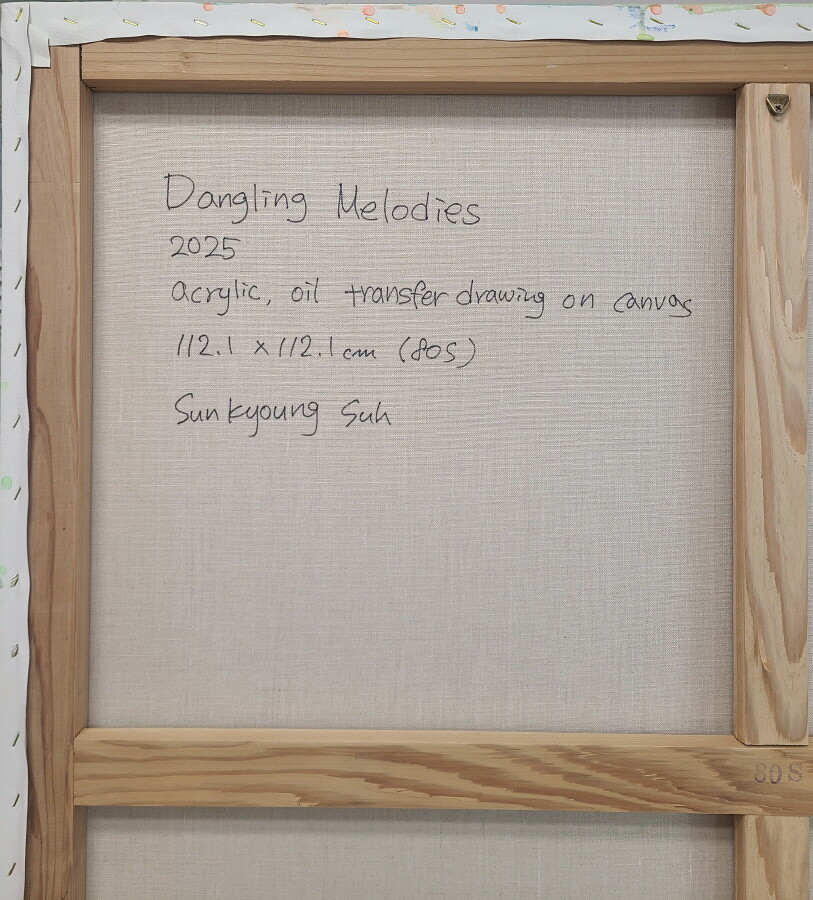 Dangling Melodies
2025
acrylic, oil transfer drawing on canvas
112.1 x 112.1 cm (80S)
Sunkyoung Suh
80 S